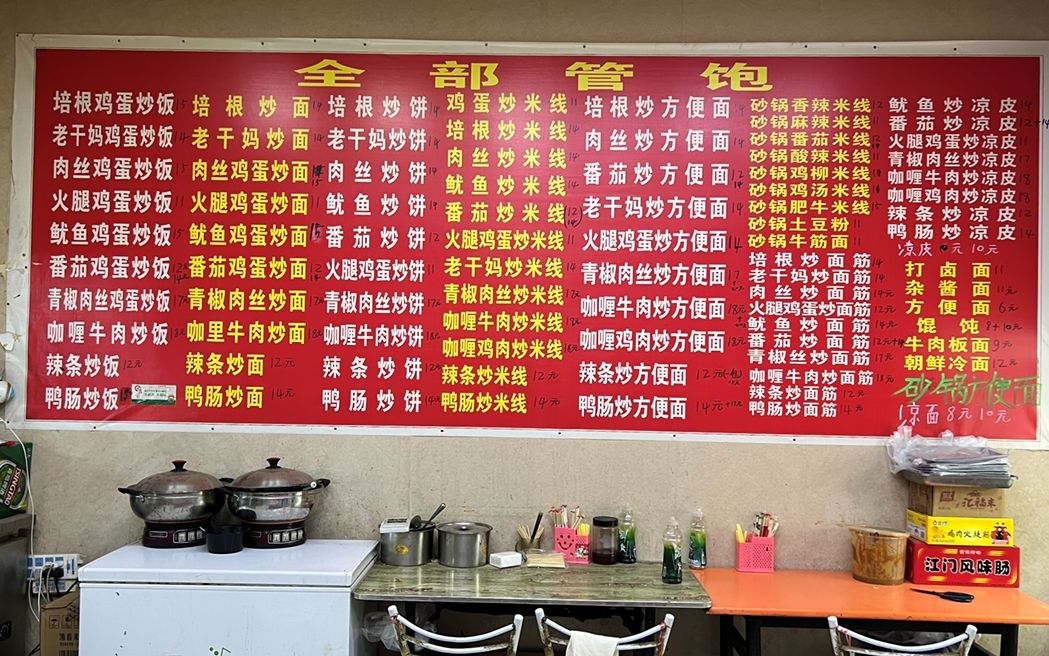 全部管饱
培根鸡蛋炒饭 15
老干妈鸡蛋炒饭 14
肉丝鸡蛋炒饭 15
火腿鸡蛋炒饭 11
鱿鱼鸡蛋炒饭
番茄鸡蛋炒饭
青椒肉丝鸡蛋炒饭
咖喱牛肉炒饭 18元
辣条炒饭 12元
鸭肠炒饭
培根炒面 14
老干妈炒面 14
肉丝鸡蛋炒面 15
火腿鸡蛋炒面 11
鱿鱼鸡蛋炒面
番茄鸡蛋炒面
青椒肉丝炒面 17元
咖里牛肉炒面 18元
辣条炒面 12元
鸭肠炒面 14元
培根炒饼 14
老干妈炒饼 14
肉丝炒饼 14
鱿鱼炒饼 14
番茄炒饼 12
火腿鸡蛋炒饼 11
青椒肉丝炒饼 17元
咖喱牛肉炒饼 18元
辣条炒饼 12元
鸭肠炒饼 14元
鸡蛋炒米线 11
培根炒米线 14
肉丝炒米线 14
鱿鱼炒米线 14
番茄炒米线 12
火腿鸡蛋炒米线 11
老干妈炒米线 14
青椒肉丝炒米线 17元
咖喱牛肉炒米线 18元
咖喱鸡肉炒米线 18元
辣条炒米线 12元
鸭肠炒米线 14元
培根炒方便面
肉丝炒方便面
番茄炒方便面 12
老干妈炒方便面
火腿鸡蛋炒方便面
青椒肉丝炒方便面 17
咖喱牛肉炒方便面 18元
咖喱鸡肉炒方便面 18元
辣条炒方便面 12元
鸭肠炒方便面 14元
砂锅香辣米线 12
砂锅麻辣米线
砂锅番茄米线
砂锅酸辣米线
砂锅鸡柳米线
砂锅鸡汤米线
砂锅肥牛米线 15
砂锅土豆粉 11
砂锅牛筋面 11
培根炒面筋 14
老干妈炒面筋 14
肉丝炒面筋 14元
火腿鸡蛋炒面筋
鱿鱼炒面筋 14元
番茄炒面筋 12元
青椒肉丝炒面筋 17元
咖喱牛肉炒面筋 18元
辣条炒面筋 12元
鸭肠炒面筋 14元
鱿鱼炒凉皮 14
番茄炒凉皮 12+14
火腿鸡蛋炒凉皮 11
青椒肉丝炒凉皮 17
咖喱牛肉炒凉皮 18
咖喱鸡肉炒凉皮 18
辣条炒凉皮 12
鸭肠炒凉皮 14
10元
打卤面 11
杂酱面 11元
方便面 6元
馄饨 8+10元
牛肉板面 9元
朝鲜冷面 12元
砂锅方便面
凉面 8元 10元
TSINGTAO
汇福来
鸡肉火腿肠
江门风味肠